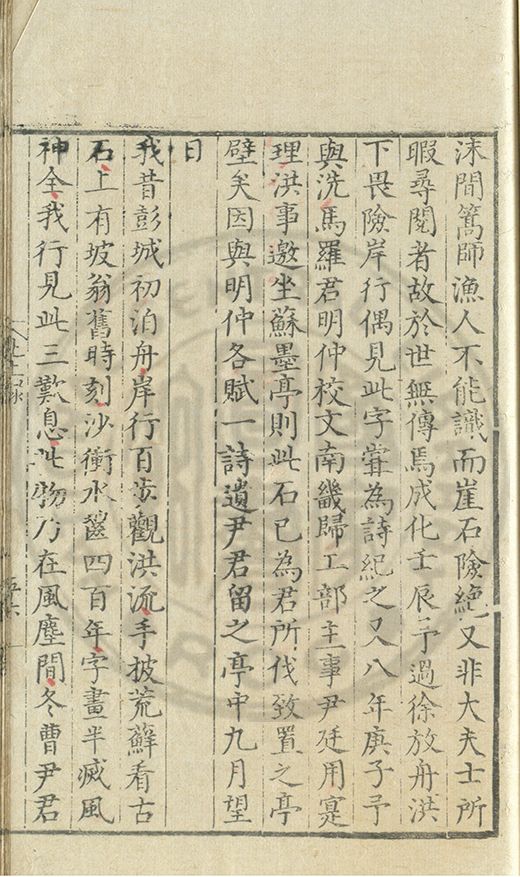 沫間篙師漁人不能識而崖石險絶又非大夫士所
暇尋閱者故於世無傳焉成化壬辰予過徐放舟洪
下畏險岸行偶見此字嘗為詩紀之又八年庚子予
與洗馬羅君明仲校文南畿歸工部主事尹廷用寔
理洪事邀坐蘇墨亭則此石已為君所伐致置之亭
壁矣因與明仲各賦一詩遺尹君留之亭中九月望
日
我昔彭城初泊舟岸行百步觀洪流手披荒蘚看古
石上有坡翁舊時刻沙衝水齧四百年字畫半滅風
神全我行見此三歎息此物乃在風塵間冬曹尹君